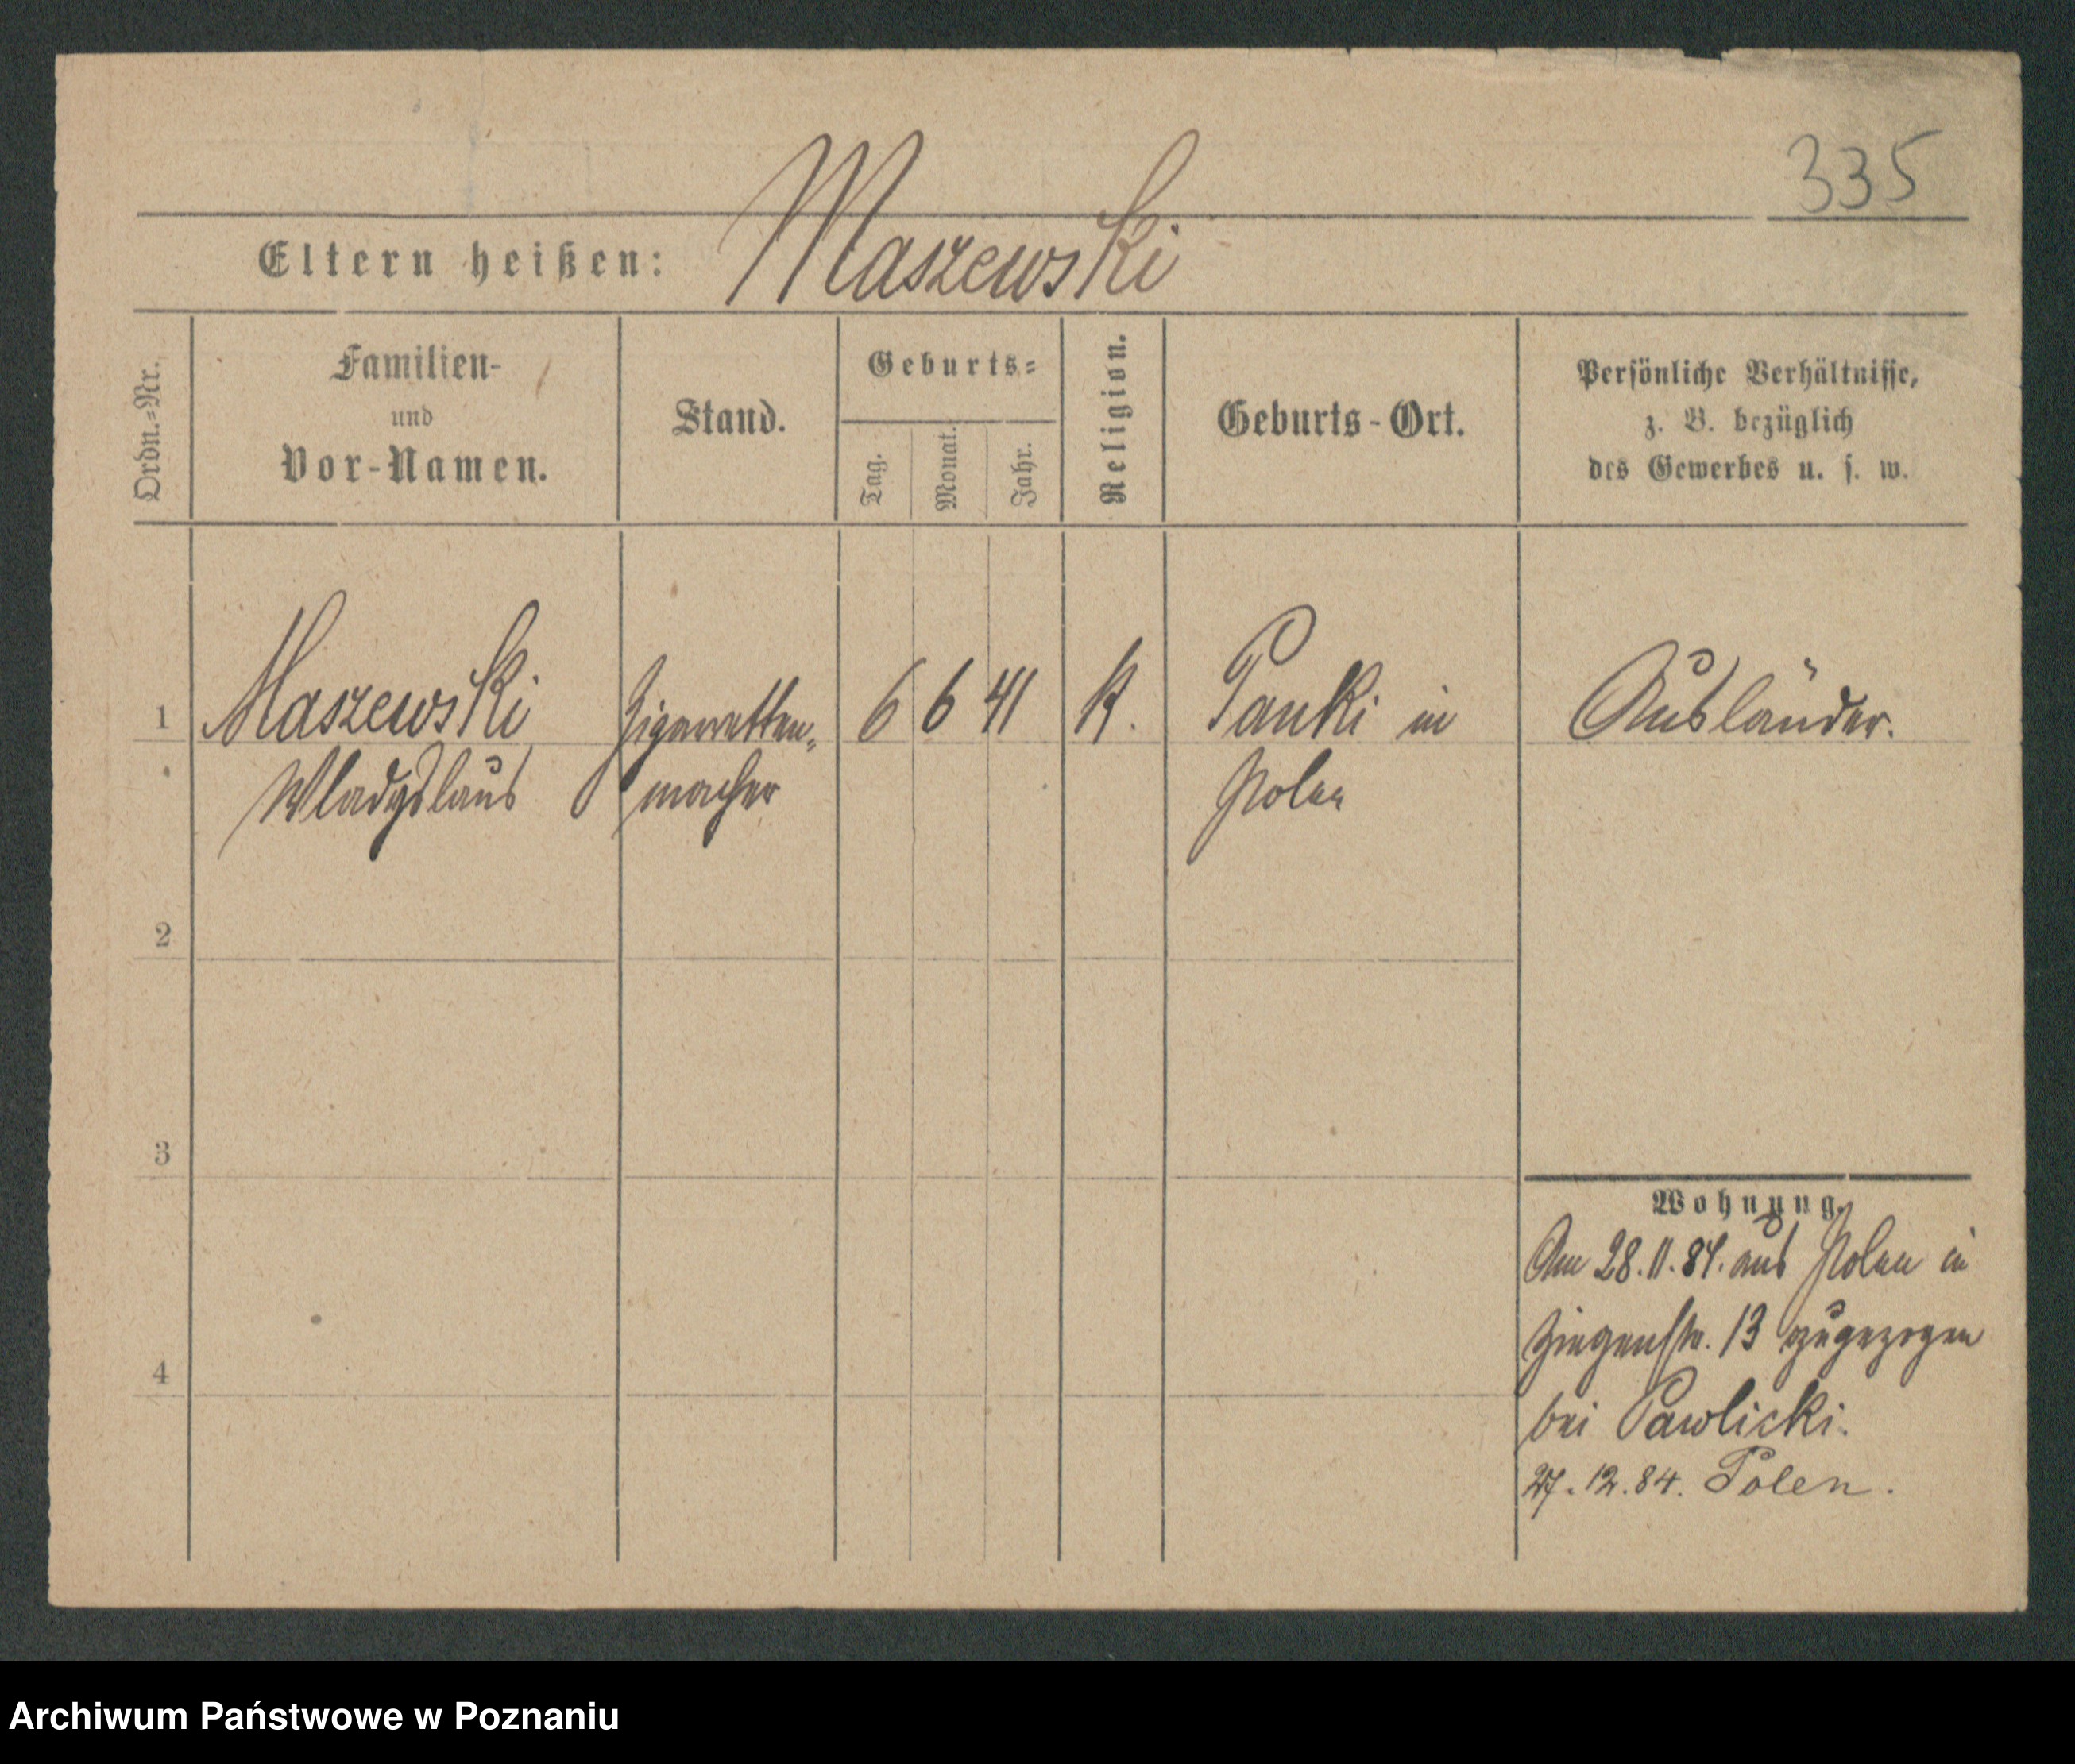 335
Eltern heißen: Maszewski
Ordn.-Nr.
Familien-
und
Vor-Namen.
Stand.
Geburts-
Tag.
Monat.
Jahr.
Religion.
Geburts-Ort.
Persönliche Verhältnisse,
z. B. bezüglich
des Gewerbes u. s. w.
1 Maszewski Zigarretten- 6 6 41 K. Panki in Ausländer.
Wladyslaus macher Polen
2
3
4
Wohnung.
Am 28.11.84. aus Polen in
Ziegenstr. 13 zugezogen
bei Pawlicki.
27.12.84. Polen.
Archiwum Państwowe w Poznaniu